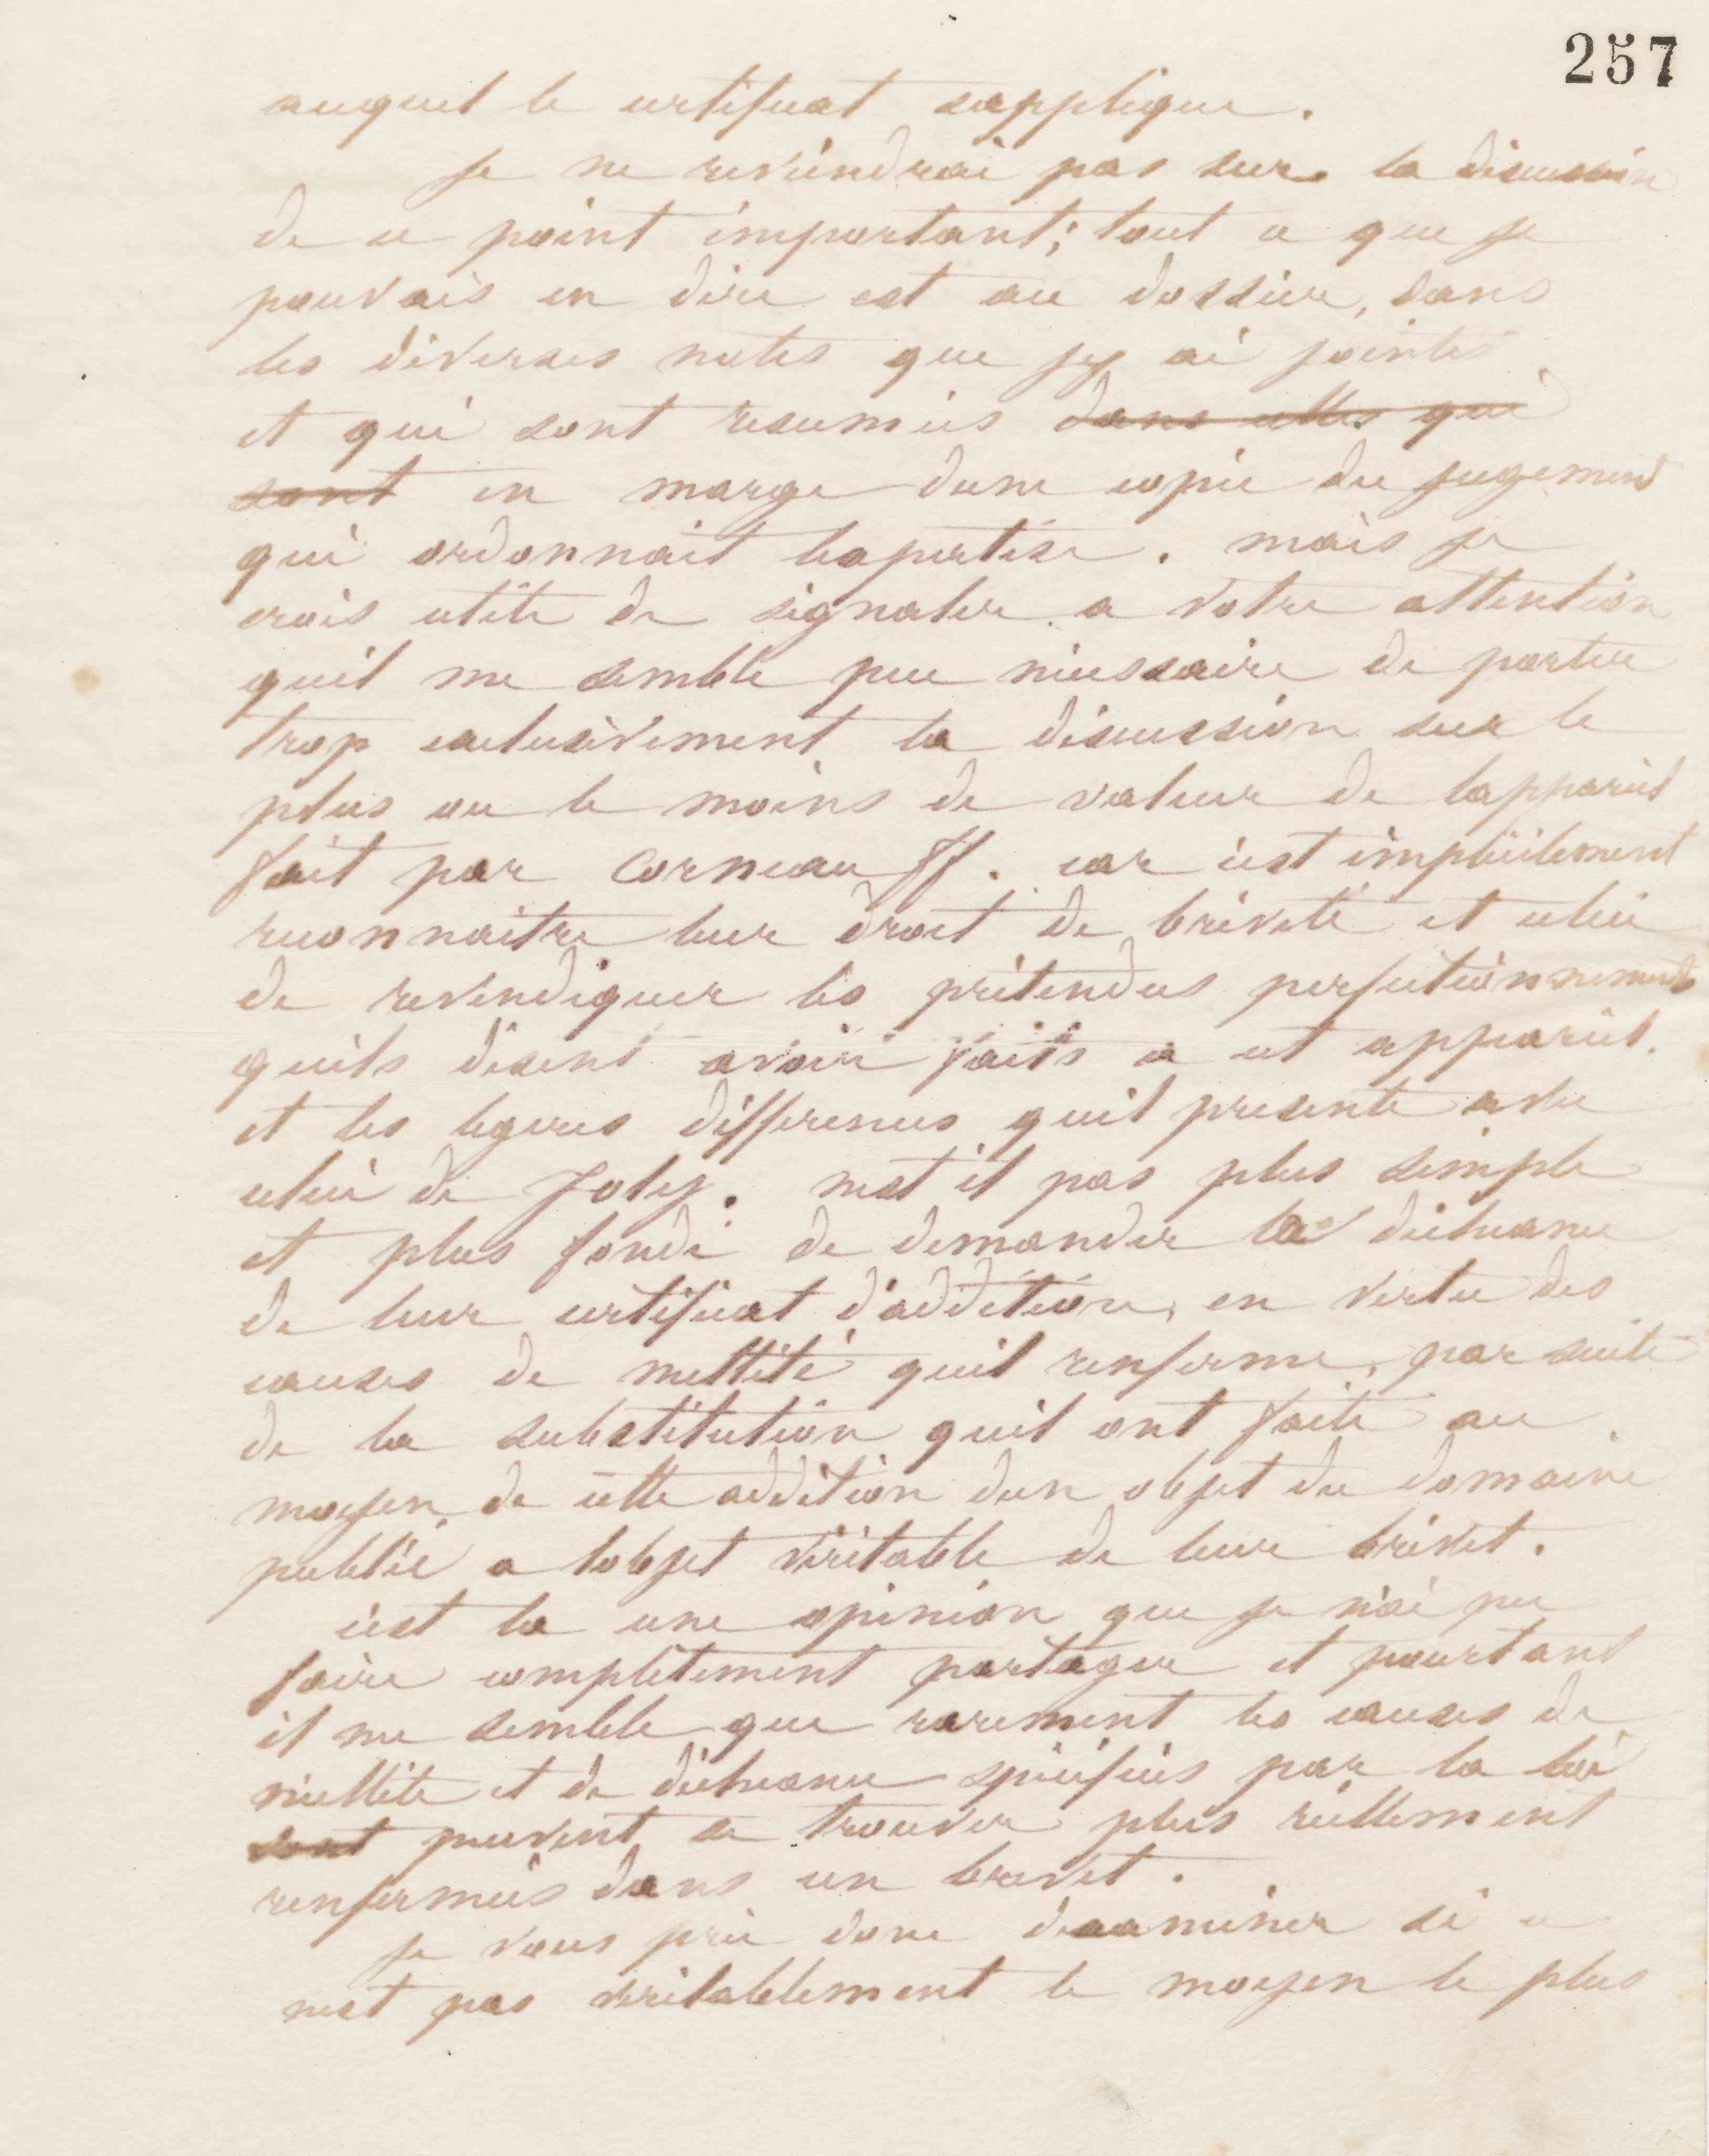 257
auquel le certificat sapplique.
Je ne reviendrai pas sur la discussion
de ce point important; tout ce que je
pouvais en dire est au dossier, dans
les diverses notes que jy ai jointes
et qui sont resumées dans celles qui
sont en marge dune copie du jugement
qui ordonnait lexpertise. mais je
crois utile de signaler a votre attention
quil me semble peu nécessaire de porter
trop exclusivement la discussion sur le
plus ou le moins de valeur de lappareil
fait par Corneau ff. car cest implicitement
reconnaitre leur droit de breveté et celui
de revendiquer les prétendus perfectionnements
quils disent avoir faits a cet appareil.
et les legeres differences quil presente avec
celui de Joly. nest il pas plus simple
et plus fondé de demander la déchéance
de leur certificat d'addition, en vertu des
causes de nullité quil renferme, par suite
de la substitution quil ont faite au
moyen de cette addition dun objet du domaine
public a lobjet véritable de leur brevet.
cest la une opinion que je n'ai pu
faire complètement partager et pourtant
il me semble que rarement les causes de
nullité et de déchéance spécifiées par la loi
sont peuvent se trouver plus réellement
renfermées dans un brevet.
je vous prie donc dexaminer si ce
nest pas véritablement le moyen le plus